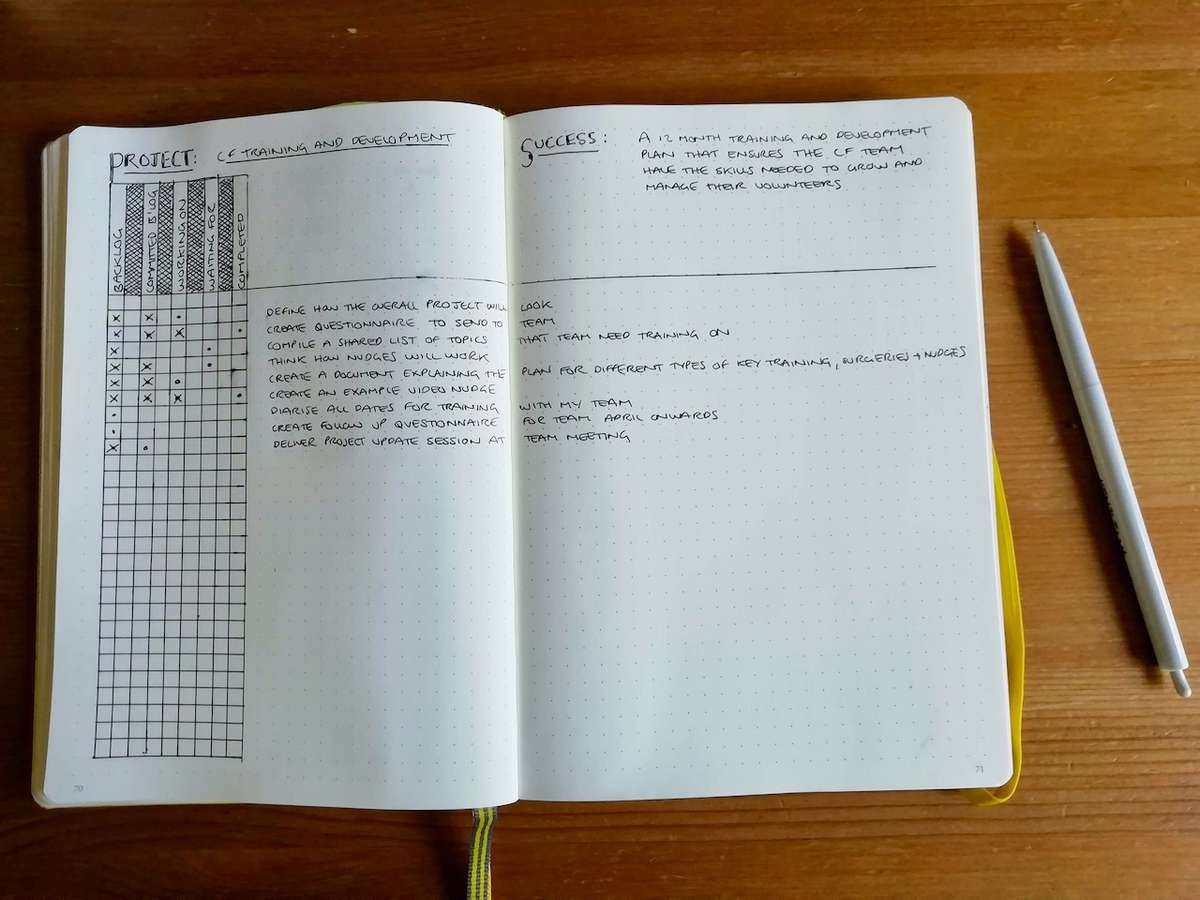 PROJECT: CF TRAINING AND DEVELOPMENT
BACKLOG
COMMITTED B'LOG
WORKING ON
WAITING FOR
COMPLETED
SUCCESS: A 12 MONTH TRAINING AND DEVELOPMENT
PLAN THAT ENSURES THE CF TEAM
HAVE THE SKILLS NEEDED TO GROW AND
MANAGE THEIR VOLUNTEERS
DEFINE HOW THE OVERALL PROJECT WILL LOOK
CREATE QUESTIONNAIRE TO SEND TO TEAM
COMPILE A SHARED LIST OF TOPICS THAT TEAM NEED TRAINING ON
THINK HOW NUDGES WILL WORK
CREATE A DOCUMENT EXPLAINING THE PLAN FOR DIFFERENT TYPES OF KEY TRAINING, SURGERIES + NUDGES
CREATE AN EXAMPLE VIDEO NUDGE
DIARISE ALL DATES FOR TRAINING WITH MY TEAM
CREATE FOLLOW UP QUESTIONNAIRE FOR TEAM APRIL ONWARDS
DELIVER PROJECT UPDATE SESSION AT TEAM MEETING
70
71